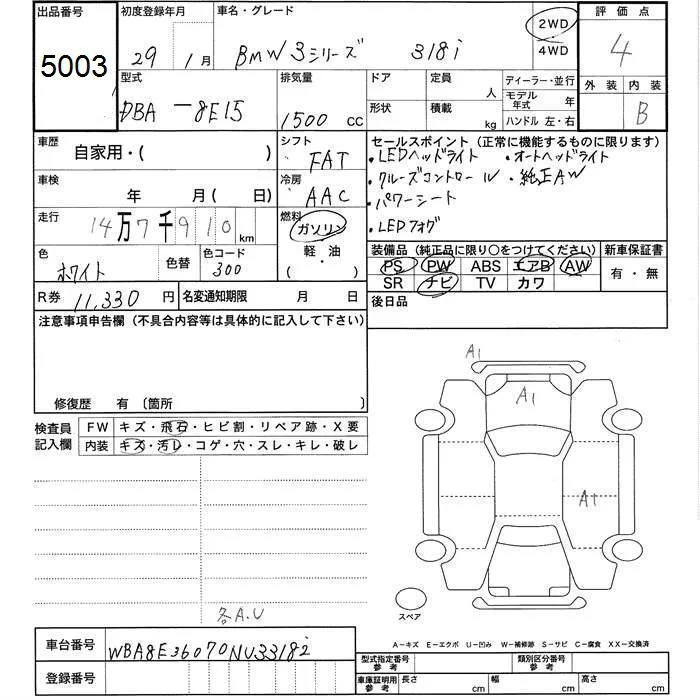 出品番号 初度登録年月 車名・グレード 2WD 4WD 評価点
5003 29年 1月 BMW 3シリーズ 318i 4
外装 内装 B
型式 排気量 ドア 定員 人 ディーラー・並行
DBA-8E15 1500cc 形状 積載 kg モデル年式 年
ハンドル 左・右
車歴 シフト セールスポイント (正常に機能するものに限ります)
自家用・( ) FAT ・LEDヘッドライト ・オートヘッドライト
車検 冷房 ・クルーズコントロール ・純正AW
年 月(日) AAC ・パワーシート
走行 燃料 ・LEDフォグ
14万7千910km ガソリン
軽・油
( )
装備品 (純正品に限り○をつけてください) 新車保証書
色 色替 色コード PS PW ABS エアB AW 有・無
ホワイト 300 SR ナビ TV カワ
R券 11,330円 名変通知期限 月 日 後日品
注意事項申告欄 (不具合内容等は具体的に記入して下さい)
A1
A1
修復歴 有 (箇所
検査員 FW キズ・飛石・ヒビ割・リペア跡・X要
記入欄 内装 キズ・汚レ・コゲ・穴・スレ・キレ・破レ
A1
スペア
各A.U
A-キズ E-エクボ U-凹み W-補修跡 S-サビ C-腐食 XX-交換済
車台番号 WBA8E36070NU33182
型式指定番号 参考 類別区分番号 参考
登録番号 車庫証明用 参考 長さ cm 幅 cm 高さ cm